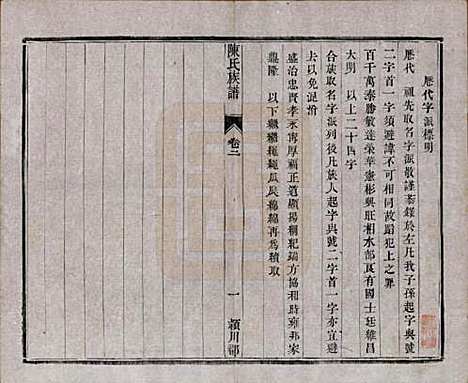 歷代字派標明
歷代 祖先取名字派敬謹著錄於左凡我子孫起字與號
二字首一字須避諱不可相同故蹈犯上之罪
百千萬泰勝敏達榮華憲彬興旺相水部良有國士廷維昌
大明 以上二十四字
合族取名字派列後凡族人起字與號二字首一字亦宜避
去以免混淆
盛治忠賢孝永壽厚福正道顯揚綱紀端方協和時雍邦家
隆 以下 繩繩瓜瓞綿綿再為續取
陳氏族譜
卷二
一
潁川郡